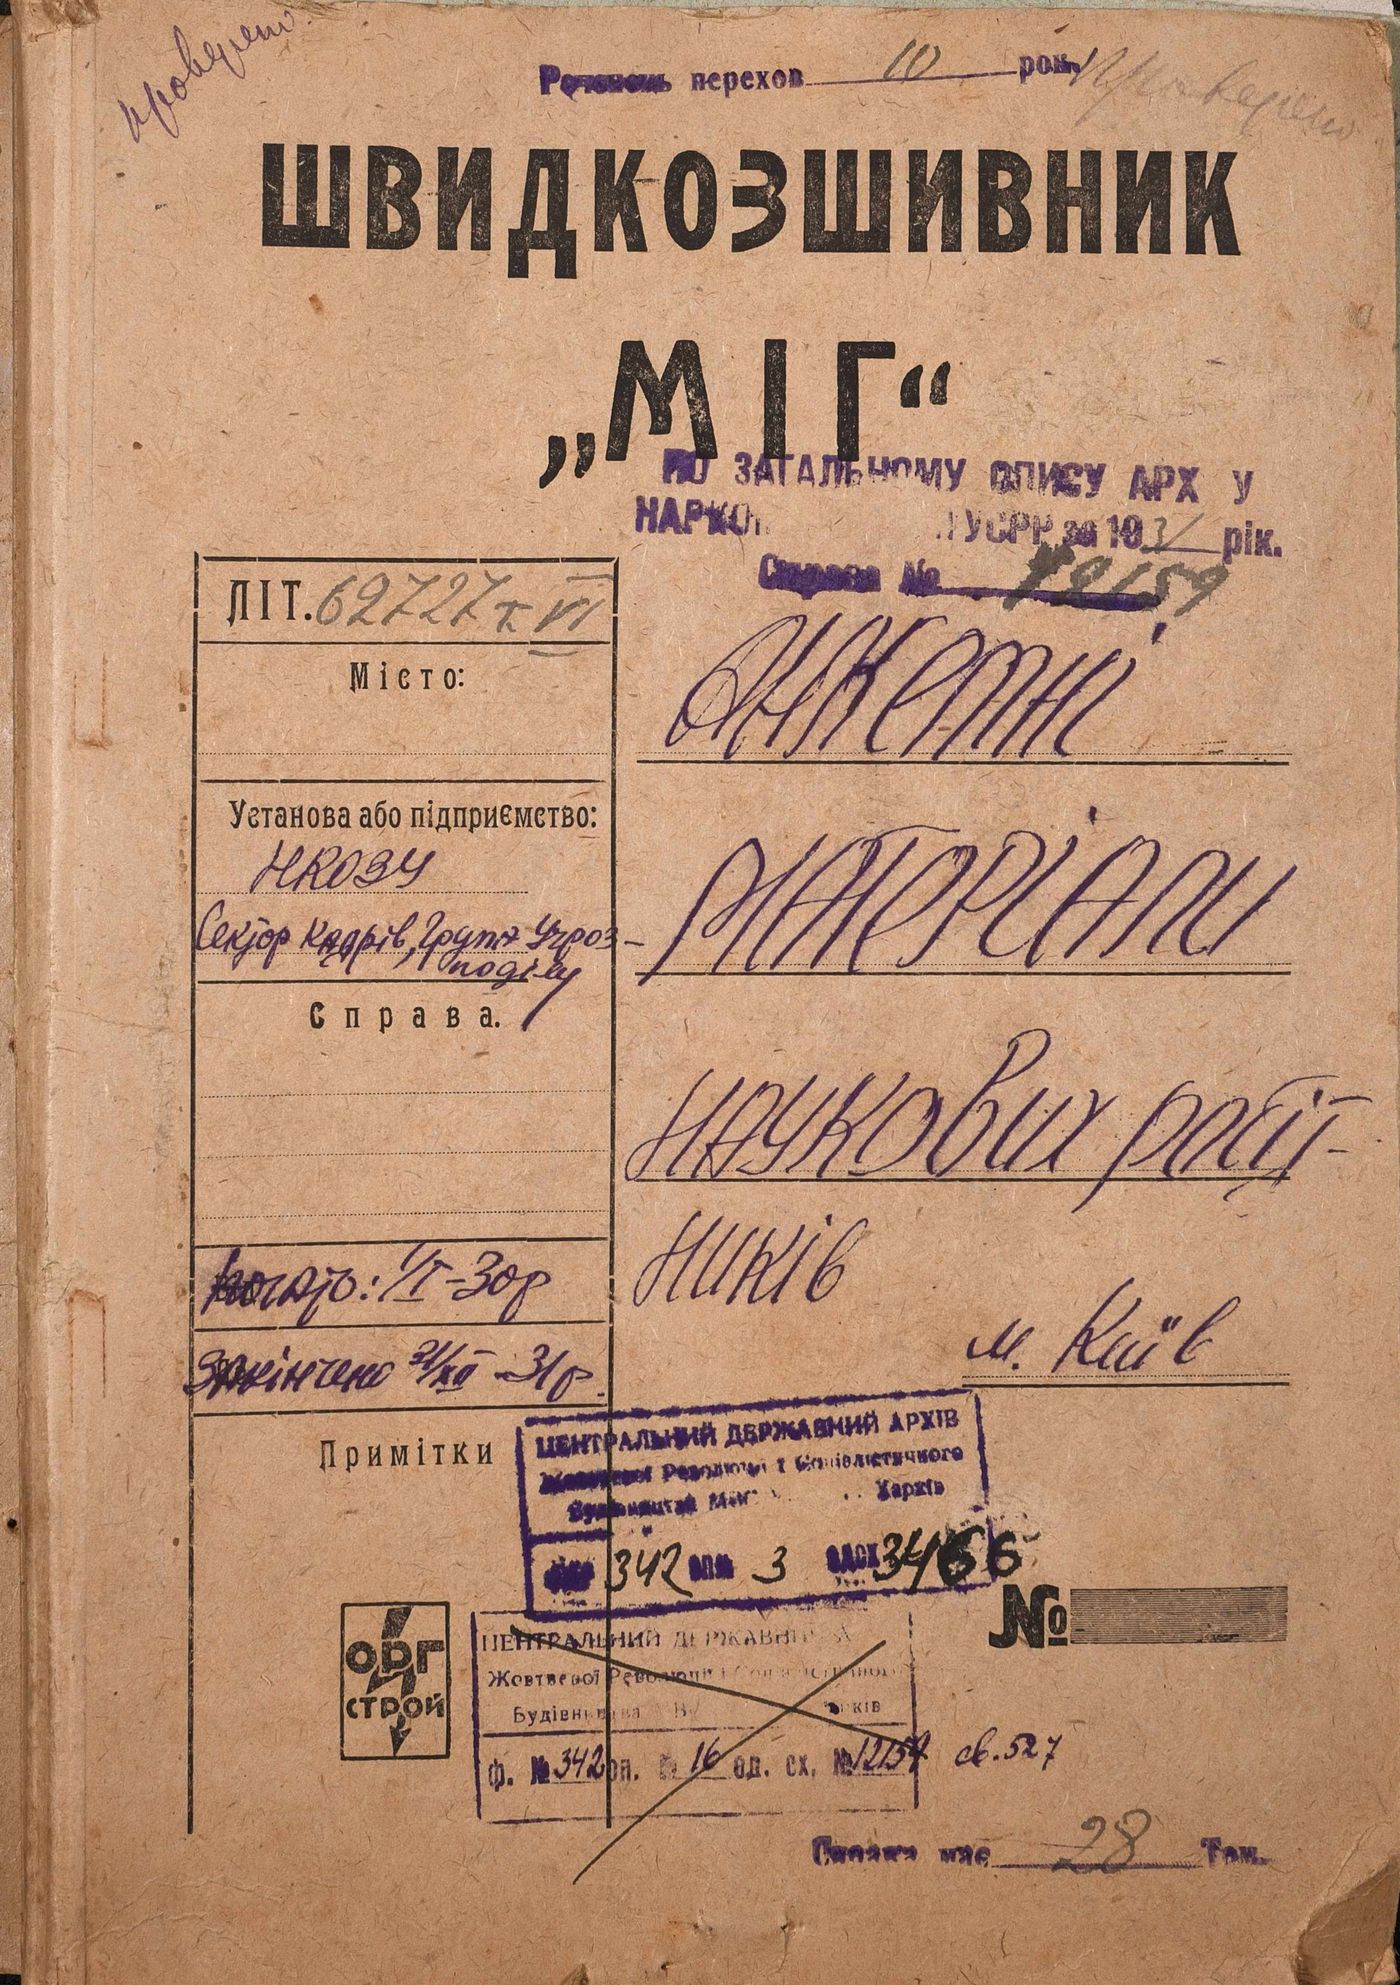 проверено
Реченець перехов. 10 рок.
Проверено
ШВИДКОЗШИВНИК
„МІГ“
ПО ЗАГАЛЬНОМУ ОПИСУ АРХ У
УСРР за 1931 рік.
Справа № 12159
ЛІТ. 62727 т. VI
Місто:
Установа або підприємство:
НКОЗУ
Сектор кадрів, Група Учроз-
поділу
Справа.
Анкетні
матеріали
наукових робіт-
ників
м. Київ
почато: 1/I-30р
Закінчено 31/XII-31р.
Примітки
ЦЕНТРАЛЬНИЙ ДЕРЖАВНИЙ АРХІВ
Жовтневої Революції і Соціалістичного
Будівництва Харків
342 3 3466
№
ОРГ
СТРОЙ
ЦЕНТРАЛЬНИЙ ДЕРЖАВНИЙ
Жовтневої Революції і Соціалістичного
Будівництва
ф. № 342 оп. № 16 од. сх. № 12159 св. 527
Справа має 28 Том.